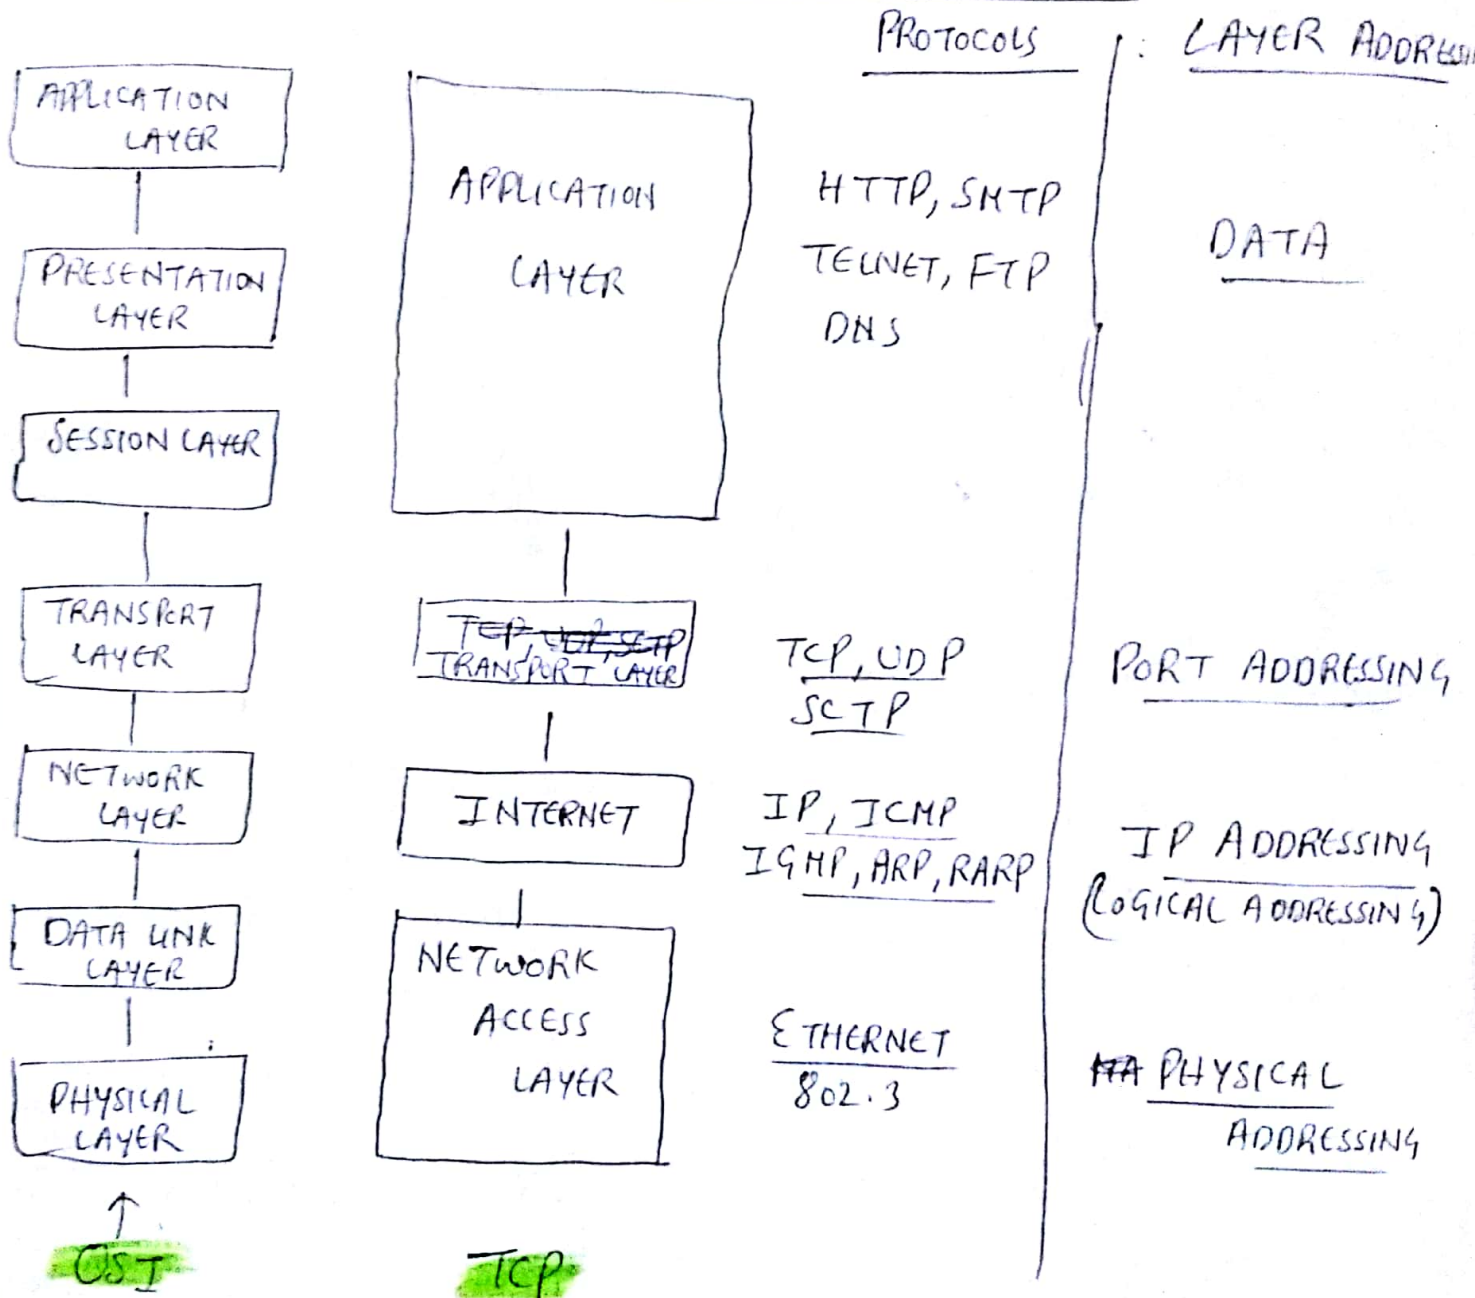 PROTOCOLS
LAYER ADDRESSIN
APPLICATION
LAYER
PRESENTATION
LAYER
SESSION LAYER
TRANSPORT
LAYER
NETWORK
LAYER
DATA LINK
LAYER
PHYSICAL
LAYER
OSI
APPLICATION
LAYER
TCP, UDP, SCTP
TRANSPORT LAYER
INTERNET
NETWORK
ACCESS
LAYER
TCP
HTTP, SMTP
TELNET, FTP
DNS
TCP, UDP
SCTP
IP, ICMP
IGMP, ARP, RARP
ETHERNET
802.3
DATA
PORT ADDRESSING
IP ADDRESSING
(LOGICAL ADDRESSING)
PHYSICAL
ADDRESSING